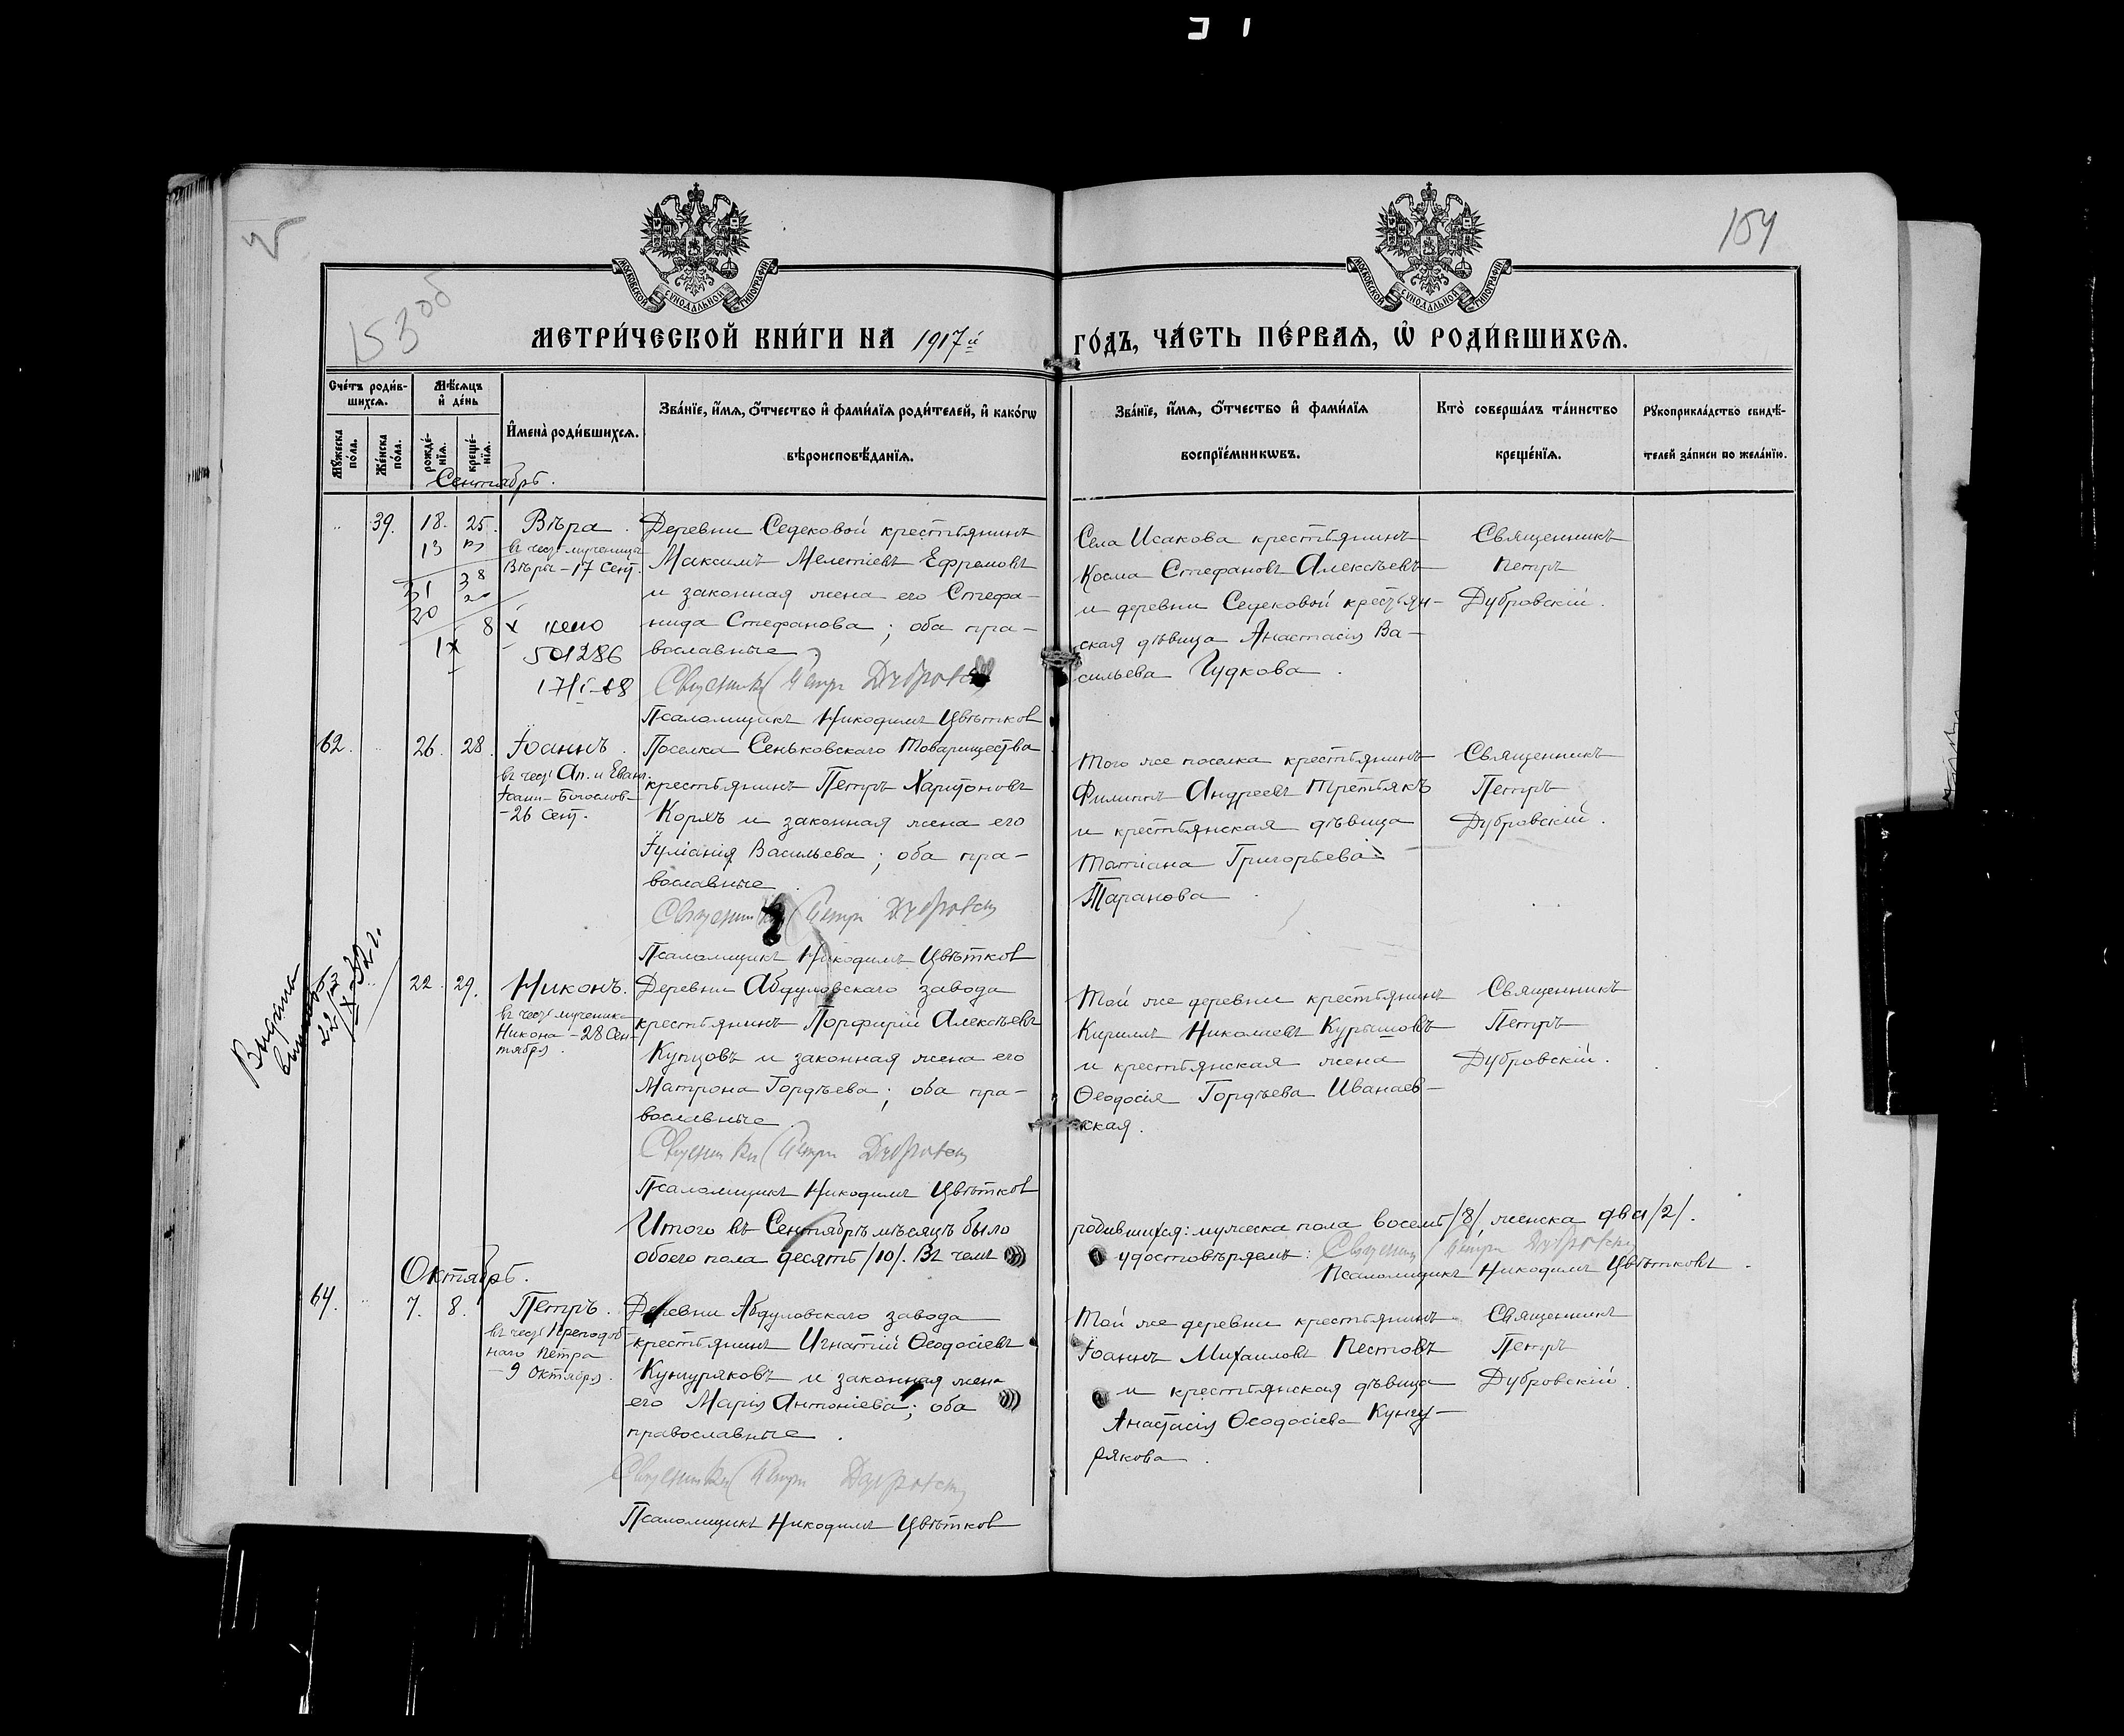 154
153 об
МОСКОВСКОЙ СѴНОДАЛЬНОЙ ТИПОГРАФІИ
МОСКОВСКОЙ СѴНОДАЛЬНОЙ ТИПОГРАФІИ
МЕТРИ́ЧЕСКОЙ КНИ́ГИ НА 1917й ГО́ДЪ, ЧА́СТЬ ПЕ́РВАѦ, Ѡ҆ РОДИ́ВШИХСѦ.
Сче́тъ роди́в-
шихсѧ.
Мꙋ́жеска по́ла.
Же́нска по́ла.
Мѣ́сѧцъ
и҆ де́нь
рожде́-
нїѧ.
креще́-
нїѧ.
И҆мена̀ роди́вшихсѧ.
Зва́нїе, и҆́мѧ, ѻ҆́тчество и҆ фами́лїѧ роди́телей, и҆ како́гѡ
вѣроисповѣ́данїѧ.
Зва́нїе, и҆́мѧ, ѻ҆́тчество и҆ фами́лїѧ
воспрїе́мникѡвъ.
Кто̀ соверша́лъ та́инство
креще́нїѧ.
Рꙋкоприкла́дство свидѣ́-
телей за́писи по жела́нїю.
Сентябрь.
39. 18. 25. Вѣра.
въ чест. мученицы
Вѣры - 17 Сент.
13
31 38
20 20
8
501286
Деревни Седековой крестьянинъ
Максимъ Мелетіевъ Ефремовъ
и законная жена его Стефа-
нида Стефанова; оба пра-
вославные.
Священникъ Петръ Дубровскій
Псаломщикъ Никодимъ Цвѣтков
Села Исакова крестьянинъ
Косма Стефановъ Алексѣевъ
и деревни Седековой крестьян-
ская дѣвица Анастасія Ва-
сильева Гудкова.
Священникъ
Петръ
Дубровскій.
62. 26. 28. Іоаннъ.
въ чест. Ап. и Еванг.
Іоанн. Богослов.
- 26 Сент.
Поселка Сеньковскаго Товарищества
крестьянинъ Петръ Харитоновъ
Коряъ и законная жена его
Іуліанія Васильева; оба пра-
вославные.
Священникъ Петръ Дубровскій
Псаломщикъ Никодимъ Цвѣтков
Того же поселка крестьянинъ
Филиппъ Андреевъ Третьякъ
и крестьянская дѣвица
Татіана Григорьева
Таранова.
Священникъ
Петръ
Дубровскій.
Выдана
22/IX-32 г.
22. 29. Никонъ.
въ чест. мученика
Никона - 28 Сен-
тября.
Деревни Абдуловскаго завода
крестьянинъ Порфирій Алексѣевъ
Купцовъ и законная жена его
Матрона Гордѣева; оба пра-
вославные.
Священникъ Петръ Дубровскій
Псаломщикъ Никодимъ Цвѣтков
Той же деревни крестьянинъ
Кириллъ Николаевъ Курышовъ
и крестьянская жена
Ѳеодосія Гордѣева Иванаев-
ская.
Священникъ
Петръ
Дубровскій.
Итого въ Сентябрѣ мѣсяцѣ было родившихся: мужеска пола восемь /8/, женска два /2/.
обоего пола десять /10/. Въ чемъ удостовѣряемъ: Священникъ Петръ Дубровскій
Псаломщикъ Никодимъ Цвѣтковъ.
Октябрь.
64. 7. 8. Петръ.
въ чест. Преподоб-
наго Петра
- 9 Октября.
Деревни Абдуловскаго завода
крестьянинъ Игнатій Ѳеодосіевъ
Кунгуряковъ и законная жена
его Марія Антоніева; оба
православные.
Священникъ Петръ Дубровскій
Псаломщикъ Никодимъ Цвѣтков
Той же деревни крестьянинъ
Іоаннъ Михаиловъ Пестовъ
и крестьянская дѣвица
Анастасія Ѳеодосіева Кунгу-
рякова.
Священникъ
Петръ
Дубровскій.